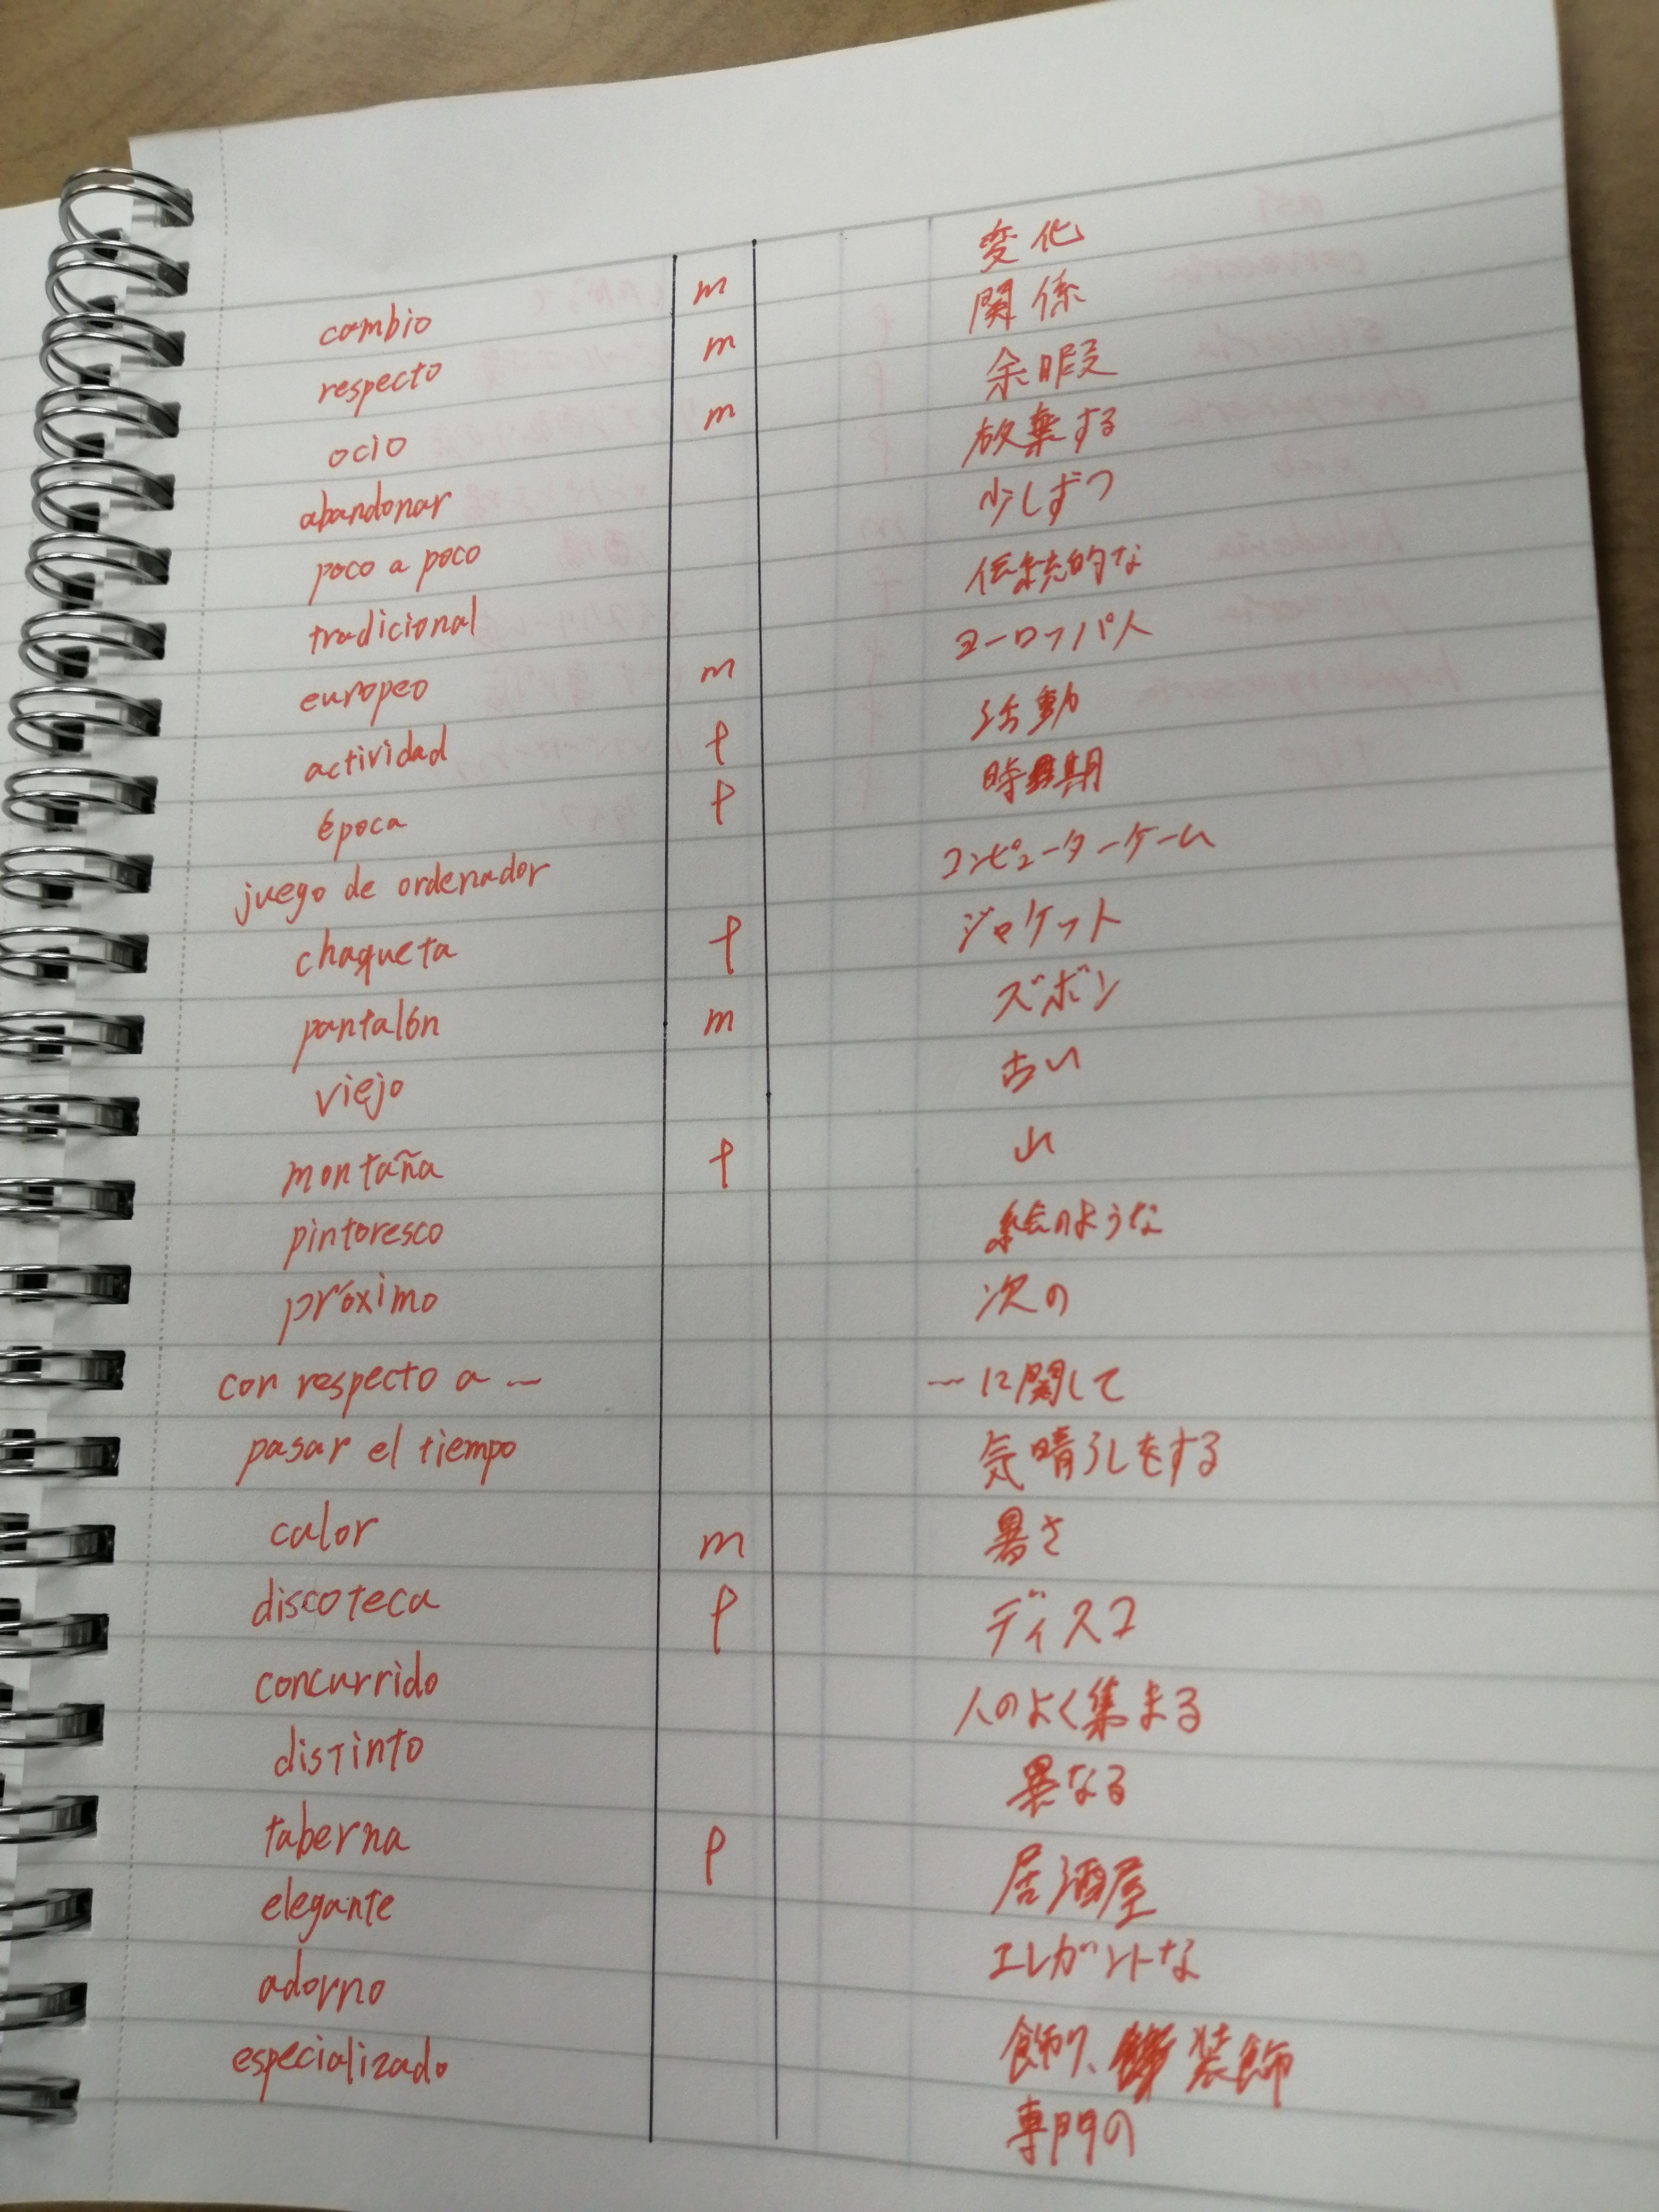 cambio m 変化
respecto m 関係
ocio m 余暇
abandonar 放棄する
poco a poco 少しずつ
tradicional 伝統的な
europeo m ヨーロッパ人
actividad f 活動
época f 時期
juego de ordenador コンピューターゲーム
chaqueta f ジャケット
pantalón m ズボン
viejo 古い
montaña f 山
pintoresco 絵のような
próximo 次の
con respecto a ~ ~に関して
pasar el tiempo 気晴らしをする
calor m 暑さ
discoteca f ディスコ
concurrido 人のよく集まる
distinto 異なる
taberna f 居酒屋
elegante エレガントな
adorno 飾り、装飾
especializado 専門の